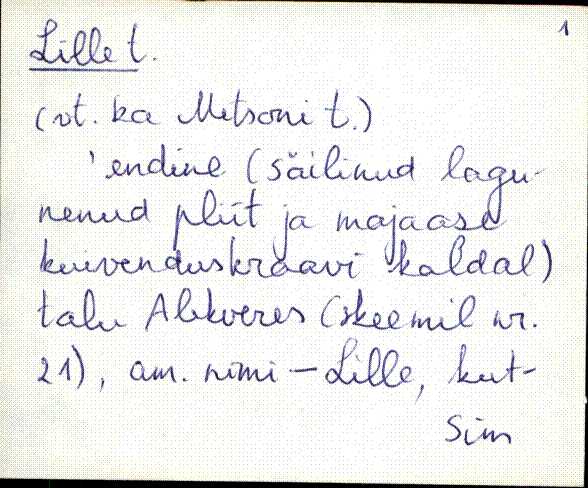 1
Lille t.
(vt. ka Metsoni t.)
'endine (säilinud lagu-
nenud pliit ja majaase
kuivenduskraavi kaldal)
talu Alekveres (skeemil nr.
21), am. nimi – Lille, kut-
Sim